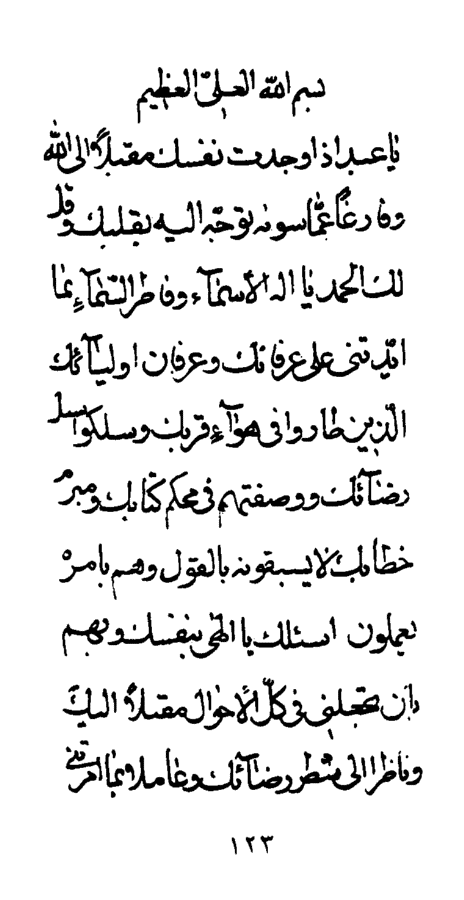 بسم الله العلیّ العظیم
یا عبد اذا وجدت نفسک مقبلاً الی الله
و فارغاً عمّا سونه توجّه الیه بقلبک و قل
لک الحمد یا اله الأسمآء و فاطر السّمآء بما
ایّدتنی علی عرفانک و عرفان اولیآئک
الّذین طاروا فی هوآء قربک و سلکوا سبل
رضائک و وصفتهم فی محکم کتابک و مبرم
خطابک لا یسبقونه بالقول و هم بامره
یعملون اسئلک یا الهی بنفسک و بهم
بان تجعلنی فی کلّ الأحوال مقبلاً الیک
و ناظراً الی شطر رضائک و عاملاً بما امرتنی
۱۲۳